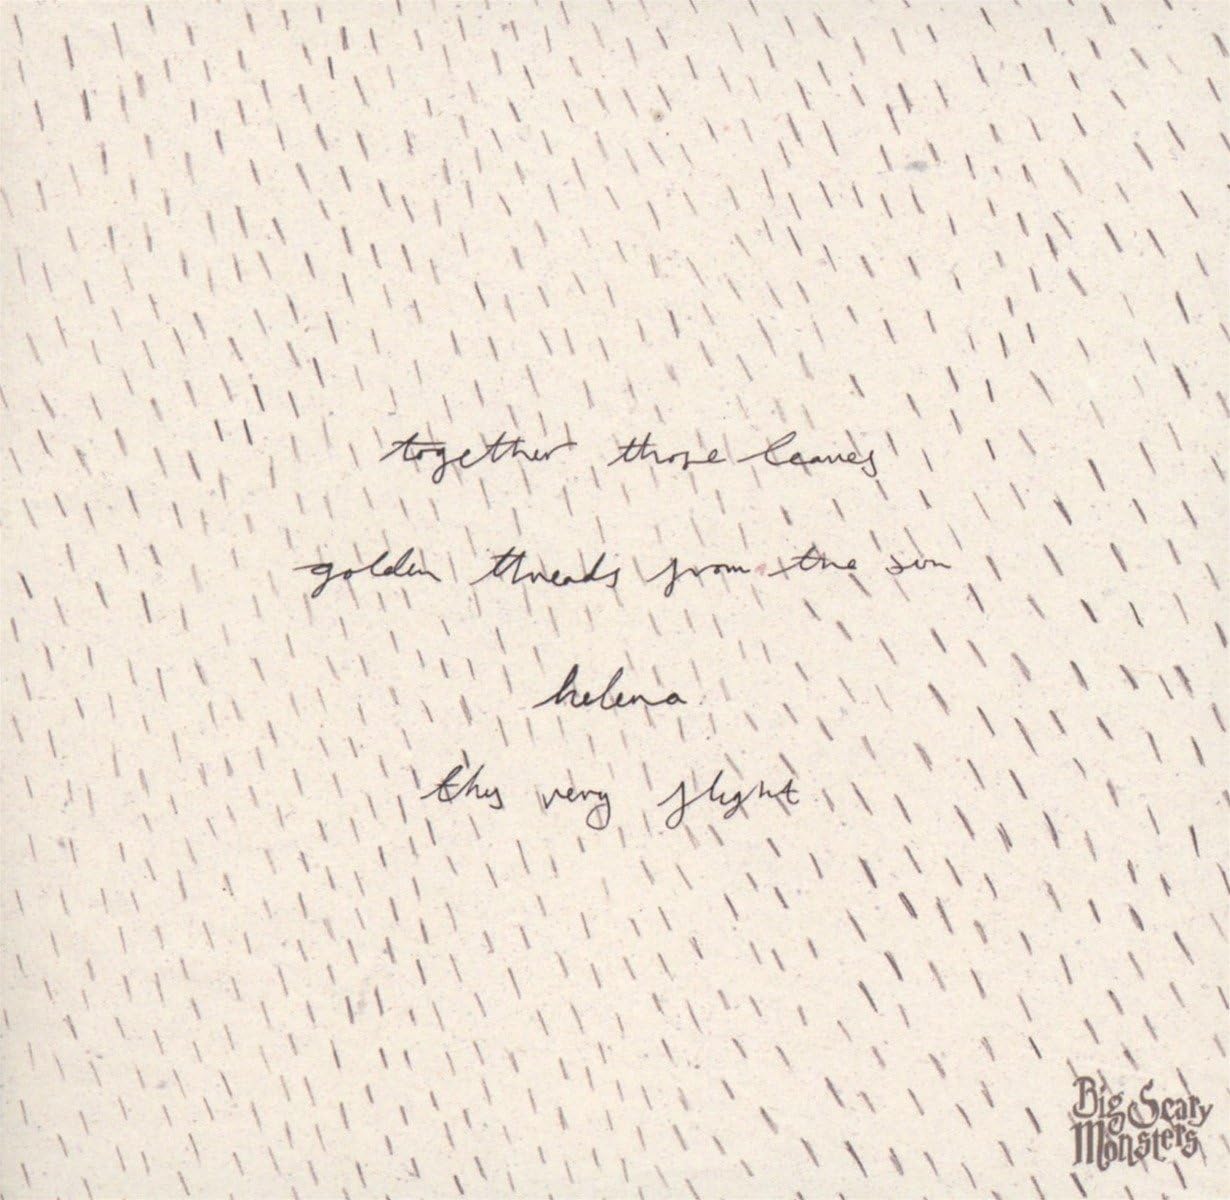 together those leaves
golden threads from the sun
helena
thy very flight
Big Scary
Monsters